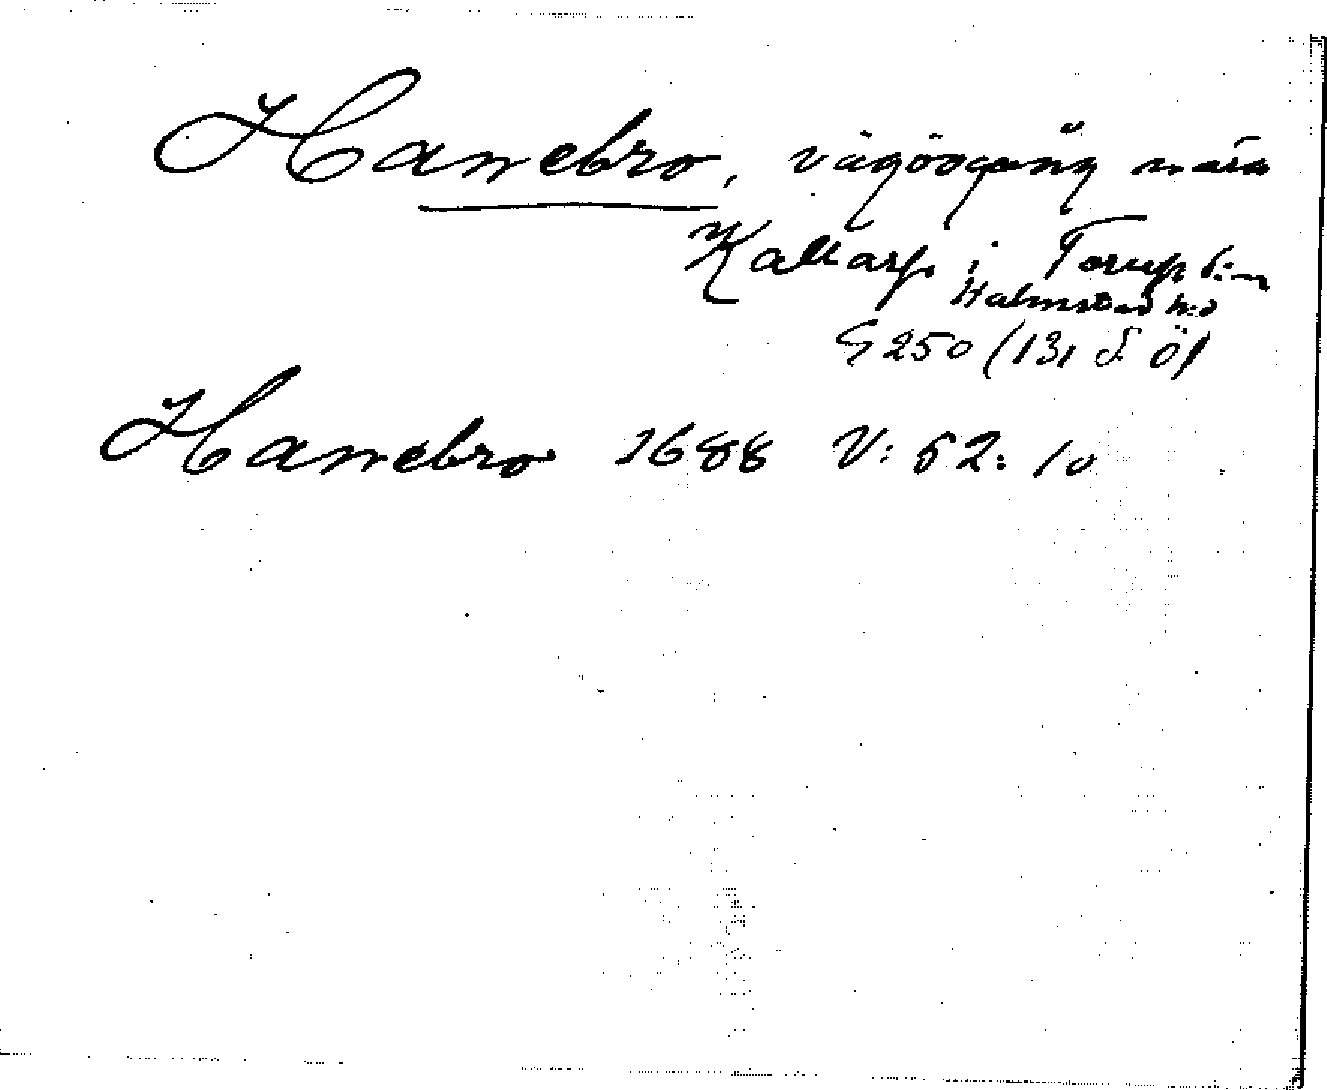 Hanebro, vägövgång nära
Kallarp i Torup s:n
Halmstad h:d
G 250 (131 S. Ö)
Hanebro 1688 V: 62: 10